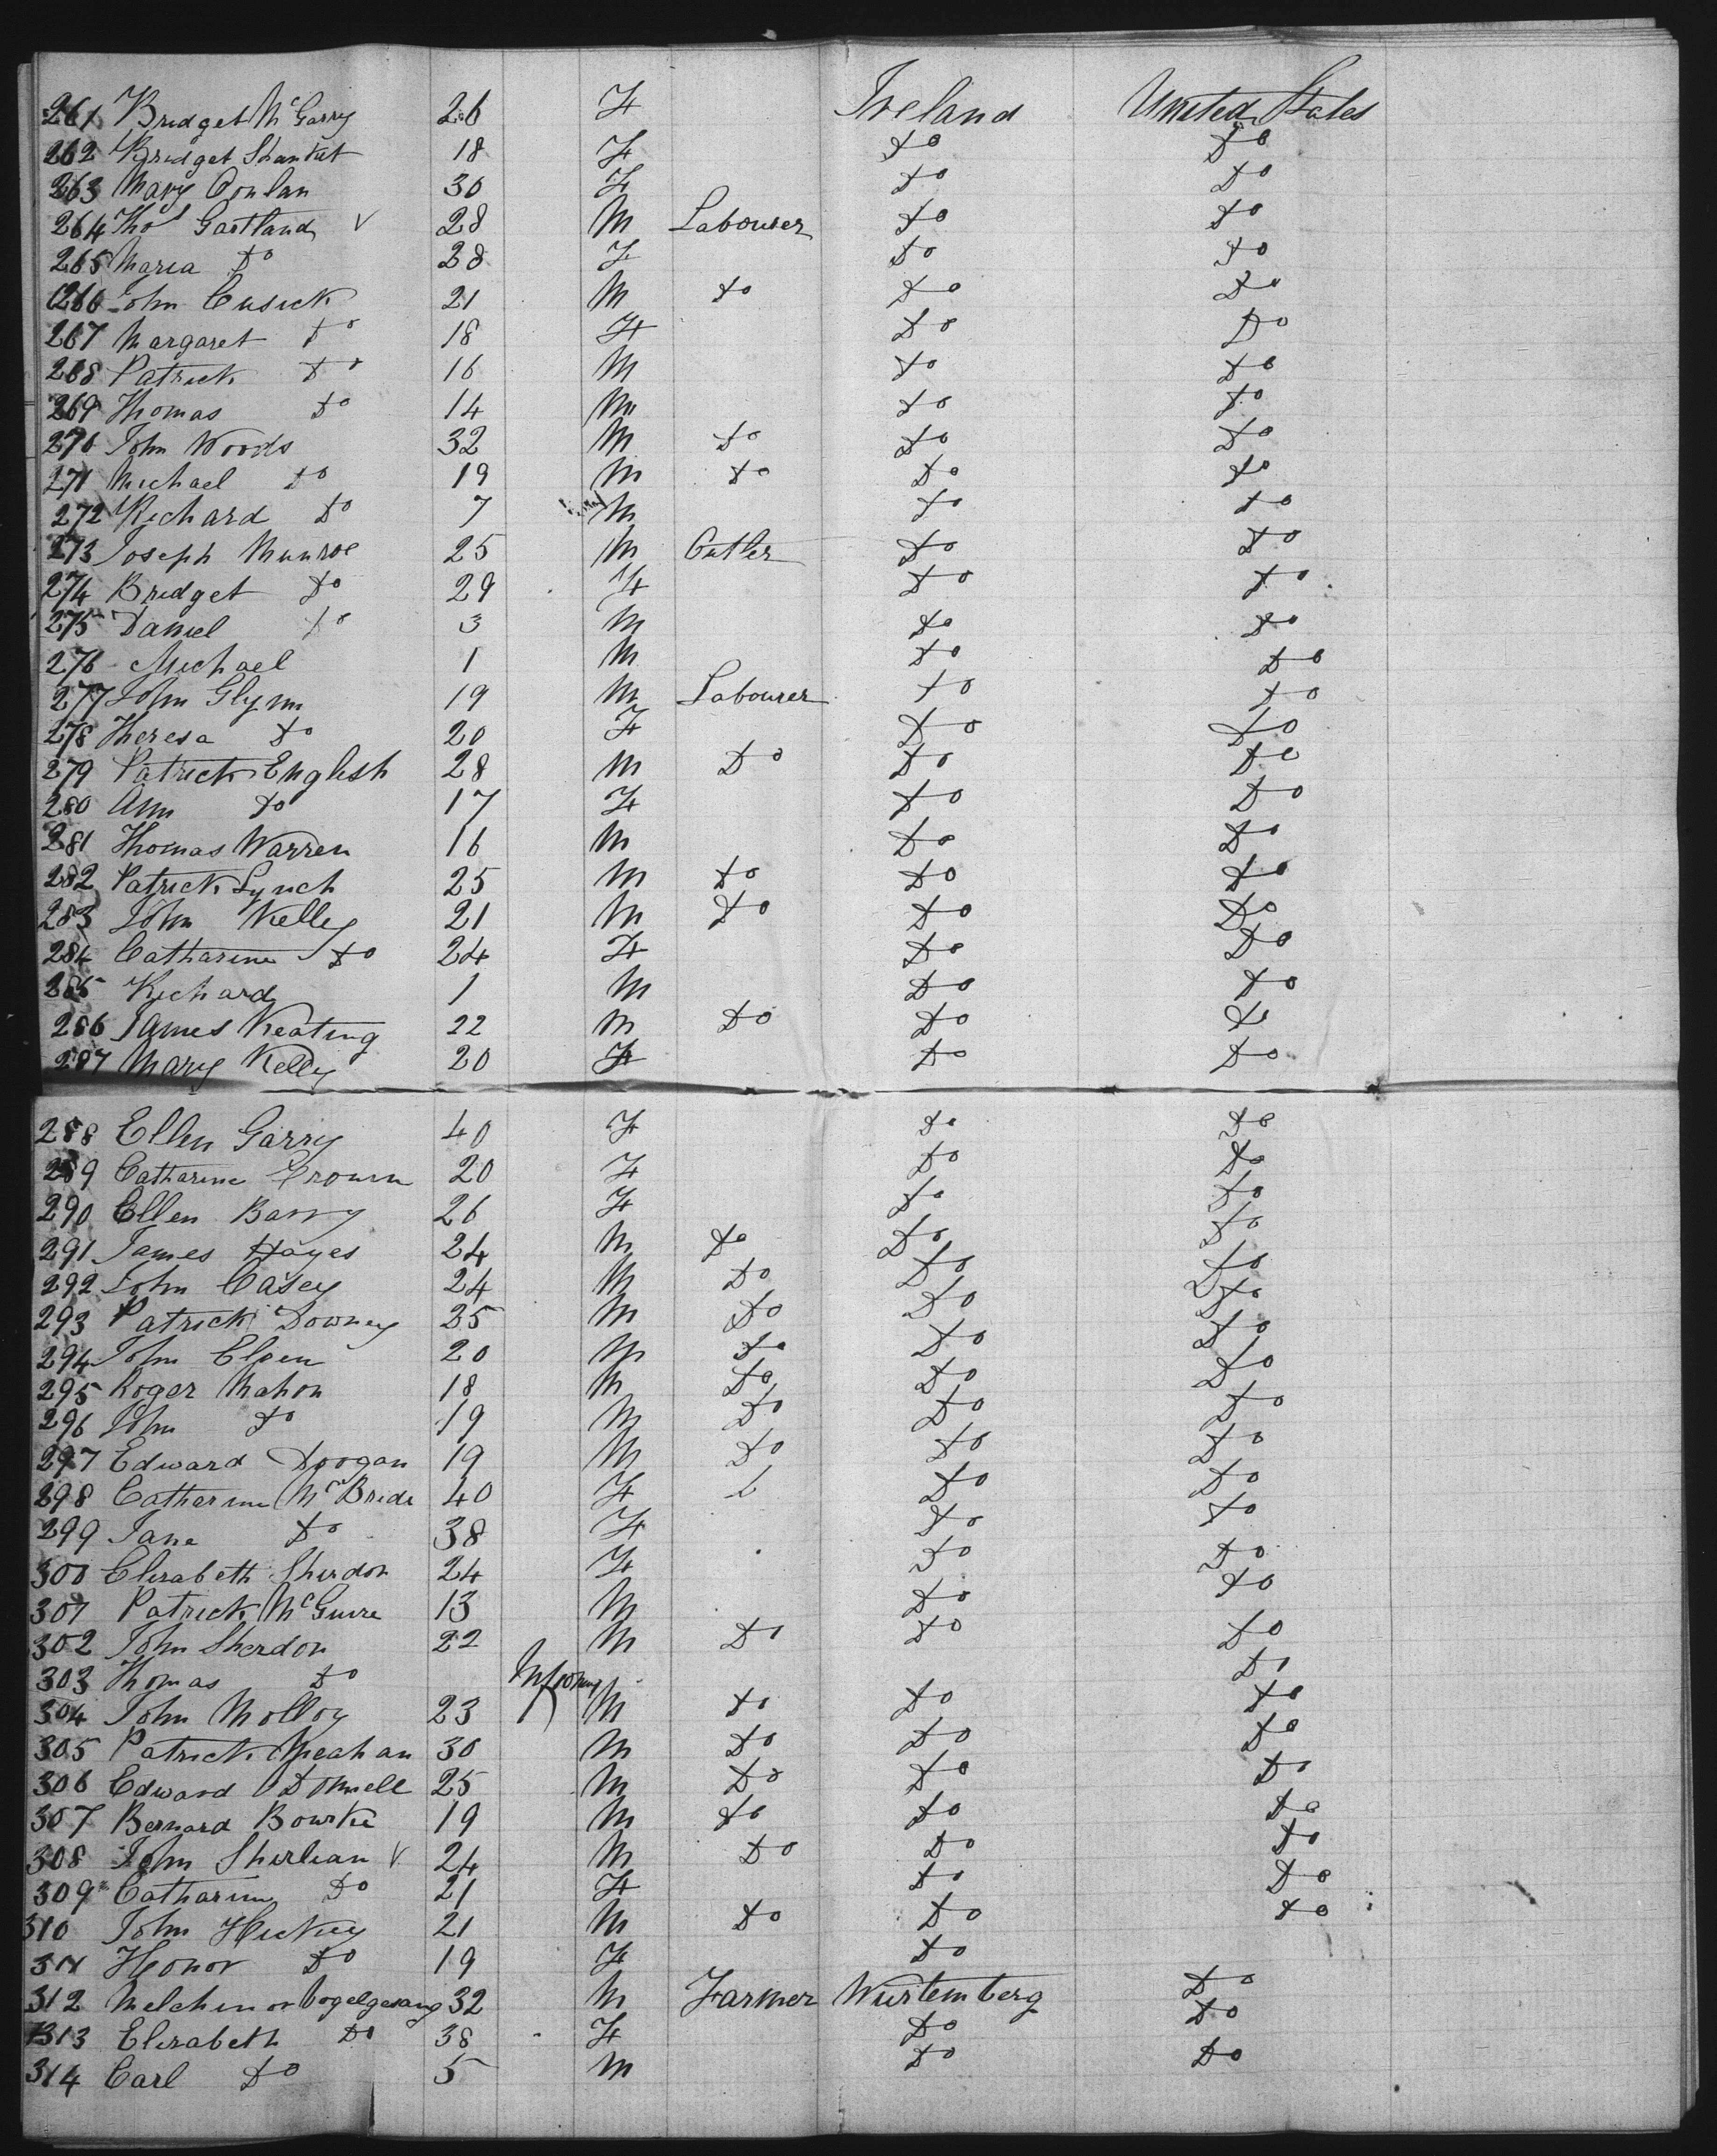 261 Bridget McGarry 26 F Ireland United States
262 Bridget 18 F Do Do
263 Mary Conlan 30 F Do Do
264 Thos Gastland V 28 M Labourer Do Do
265 Maria Do 28 F Do Do
266 John Cusick 21 M Do Do Do
267 Margaret Do 18 F Do Do
268 Patrick Do 16 M Do Do
269 Thomas Do 14 M Do Do
270 John Woods 32 M Do Do Do
271 Michael Do 19 M Do Do Do
272 Richard Do 7 M Do Do
273 Joseph Munroe 25 M Cutler Do Do
274 Bridget Do 29 F Do Do
275 Daniel Do 3 M Do Do
276 Michael 1 M Do Do
277 John Glynn 19 M Labourer Do Do
278 Theresa Do 20 F Do Do
279 Patrick English 28 M Do Do Do
280 Ann Do 17 F Do Do
281 Thomas Warren 16 M Do Do
282 Patrick Lynch 25 M Do Do Do
283 John Kelley 21 M Do Do Do
284 Catharine Do 24 F Do Do
285 Richard 1 M Do Do
286 James Keating 22 M Do Do Do
287 Mary Kelly 20 F Do Do
288 Ellen Garry 40 F Do Do
289 Catharine 20 F Do Do
290 Ellen Barry 26 F Do Do
291 James Hayes 24 M Do Do Do
292 John Casey 24 M Do Do Do
293 Patrick Downey 25 M Do Do Do
294 John 20 M Do Do Do
295 Roger Mahon 18 M Do Do Do
296 John Do 19 M Do Do Do
297 Edward Doogan 19 M Do Do Do
298 Catharine McBride 40 F Do Do
299 Jane Do 38 F Do Do
300 Elisabeth Sherdon 24 F Do Do
301 Patrick McGuire 13 M Do Do
302 John Sherdon 22 M Do Do Do
303 Thomas Do Do
304 John Molloy 23 M Do Do Do
305 Patrick Meahan 30 M Do Do Do
306 Edward O Donnell 25 M Do Do Do
307 Bernard Bourke 19 M Do Do Do
308 John Sherlian V 24 M Do Do Do
309 Catharine Do 21 F Do Do
310 John Hickey 21 M Do Do Do
311 Honor Do 19 F Do
312 Melchior Vogelgesang 32 M Farmer Wurtemberg Do
313 Elisabeth Do 38 F Do Do
314 Carl Do 5 M Do Do